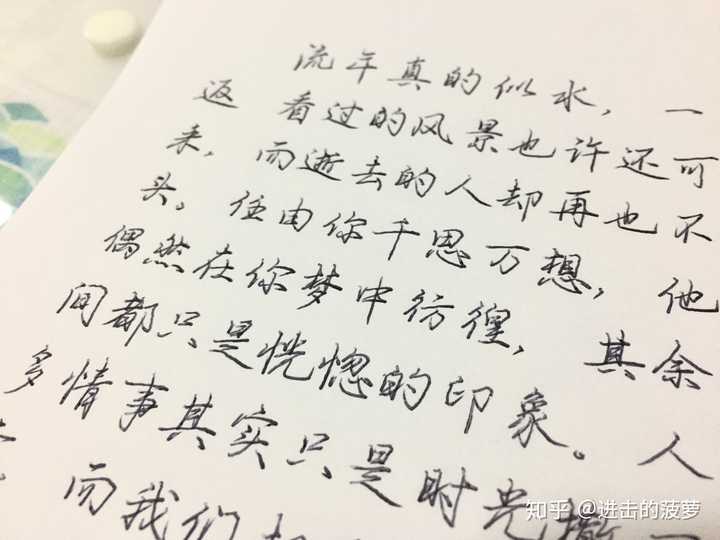 流年真的似水，一
返 看过的风景也许还可
来，而逝去的人却再也不
头。任由你千思万想，他
偶然在你梦中彷徨，其余
间都只是恍惚的印象。人
多情事其实只是时光撒
而我们
知乎 @进击的菠萝